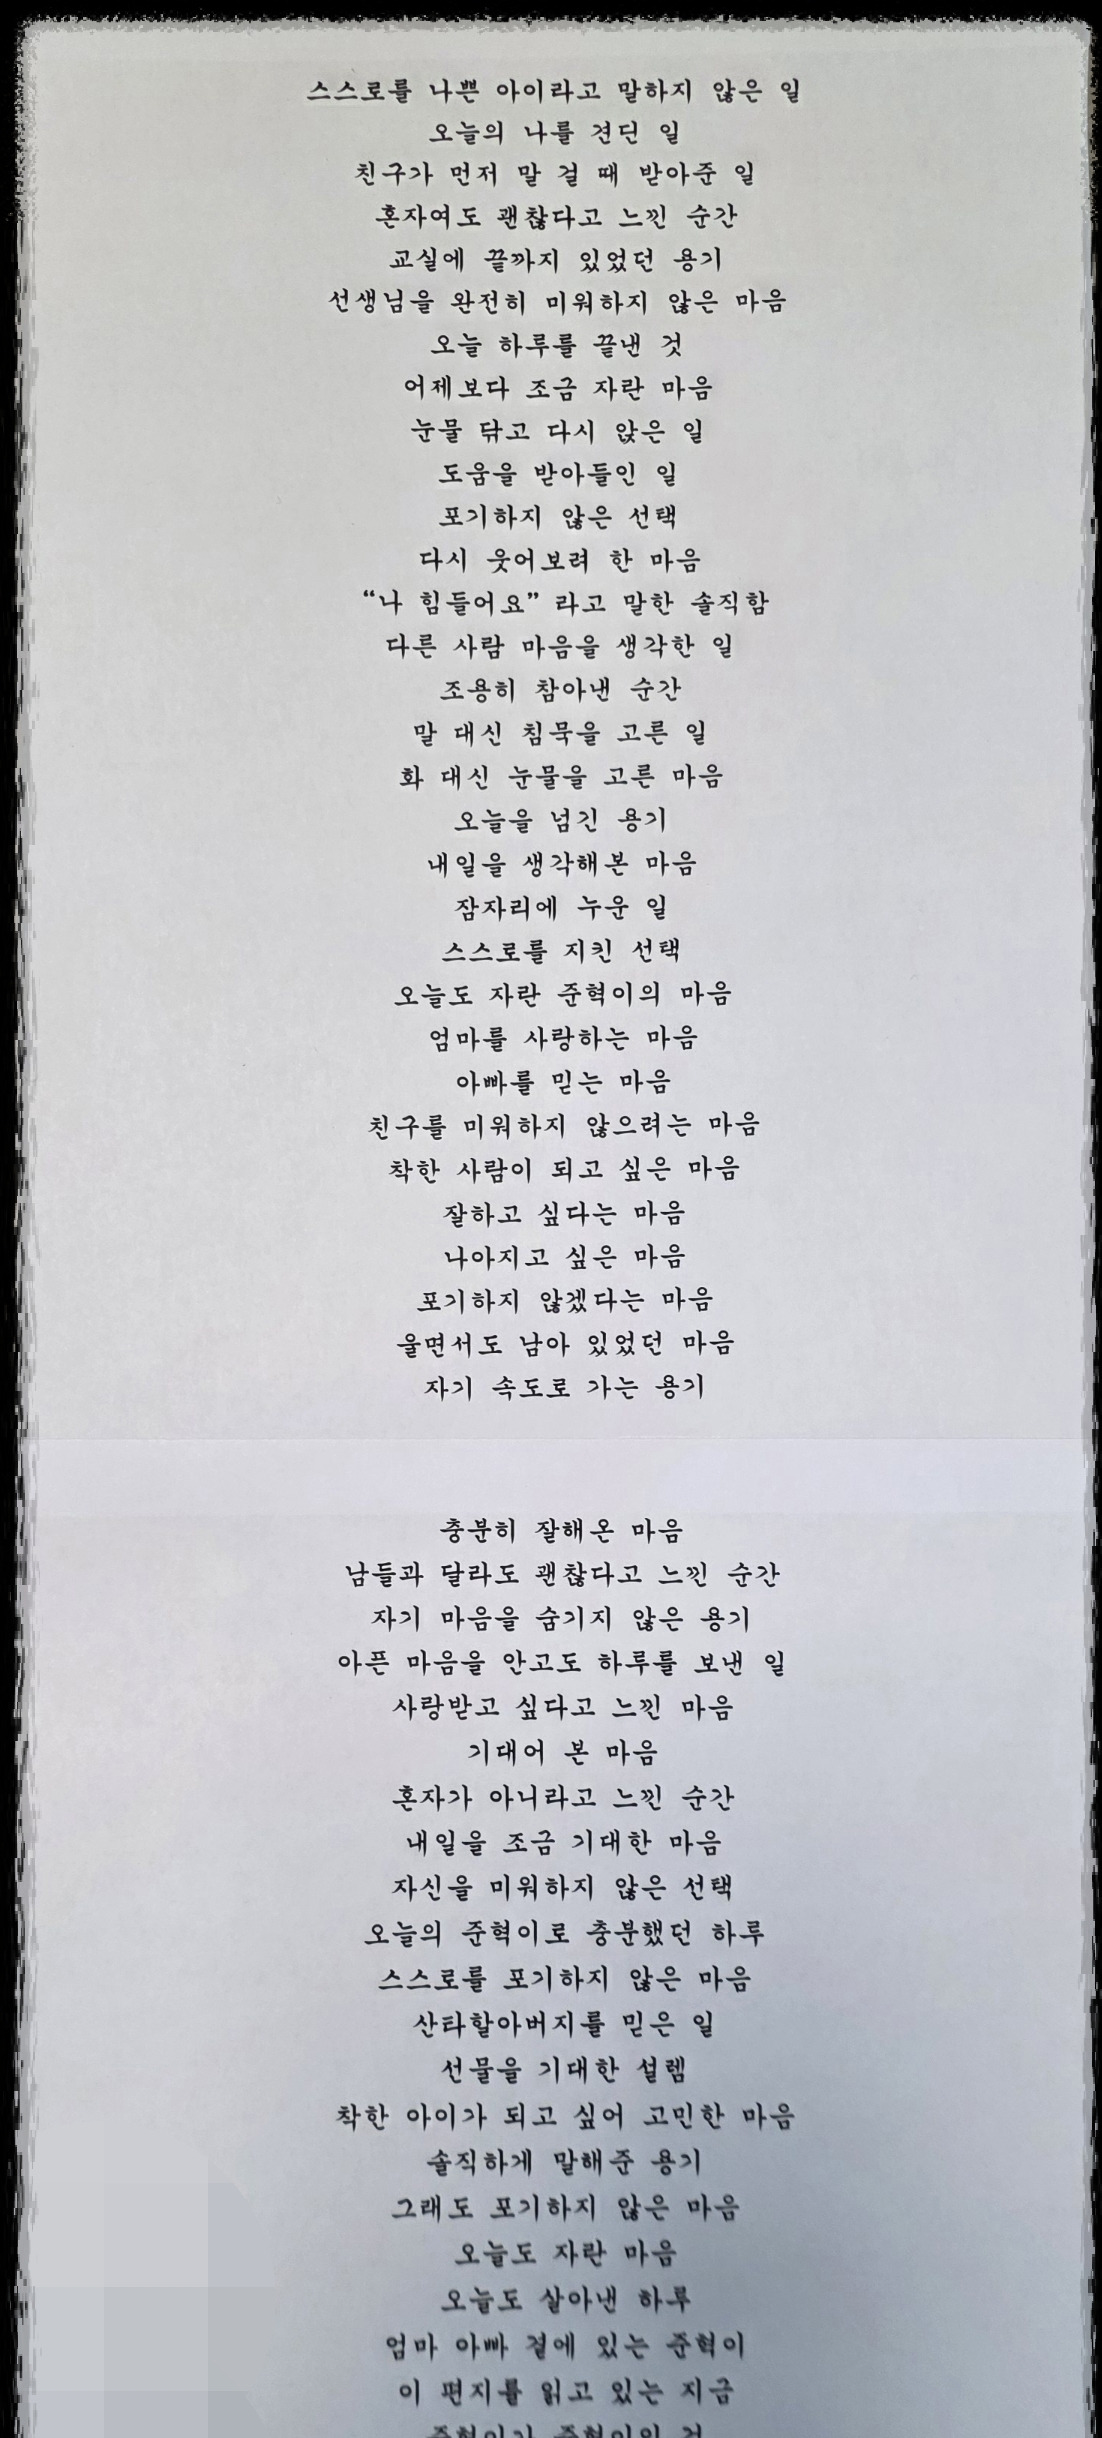 스스로를 나쁜 아이라고 말하지 않은 일
오늘의 나를 견딘 일
친구가 먼저 말 걸 때 받아준 일
혼자여도 괜찮다고 느낀 순간
교실에 끝까지 있었던 용기
선생님을 완전히 미워하지 않은 마음
오늘 하루를 끝낸 것
어제보다 조금 자란 마음
눈물 닦고 다시 앉은 일
도움을 받아들인 일
포기하지 않은 선택
다시 웃어보려 한 마음
“나 힘들어요” 라고 말한 솔직함
다른 사람 마음을 생각한 일
조용히 참아낸 순간
말 대신 침묵을 고른 일
화 대신 눈물을 고른 마음
오늘을 넘긴 용기
내일을 생각해본 마음
잠자리에 누운 일
스스로를 지킨 선택
오늘도 자란 준혁이의 마음
엄마를 사랑하는 마음
아빠를 믿는 마음
친구를 미워하지 않으려는 마음
착한 사람이 되고 싶은 마음
잘하고 싶다는 마음
나아지고 싶은 마음
포기하지 않겠다는 마음
울면서도 남아 있었던 마음
자기 속도로 가는 용기
충분히 잘해온 마음
남들과 달라도 괜찮다고 느낀 순간
자기 마음을 숨기지 않은 용기
아픈 마음을 안고도 하루를 보낸 일
사랑받고 싶다고 느낀 마음
기대어 본 마음
혼자가 아니라고 느낀 순간
내일을 조금 기대한 마음
자신을 미워하지 않은 선택
오늘의 준혁이로 충분했던 하루
스스로를 포기하지 않은 마음
산타할아버지를 믿은 일
선물을 기대한 설렘
착한 아이가 되고 싶어 고민한 마음
솔직하게 말해준 용기
그래도 포기하지 않은 마음
오늘도 자란 마음
오늘도 살아낸 하루
엄마 아빠 곁에 있는 준혁이
이 편지를 읽고 있는 지금